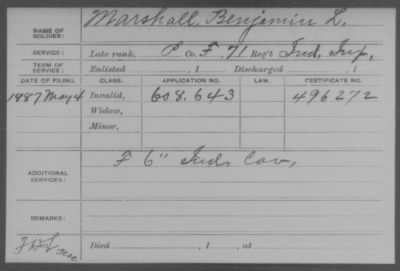 NAME OF SOLDIER: Marshall, Benjamin L.
SERVICE: Late rank, P Co. F, 71 Reg't Ind. Inf,
TERM OF SERVICE: Enlisted , 1 Discharged , 1
DATE OF FILING. CLASS. APPLICATION NO. LAW. CERTIFICATE NO.
1887 May 4 Invalid, 608.643 496272
Widow,
Minor,
F 6" Ind. Cav,
ADDITIONAL SERVICES:
REMARKS:
Died , 1 , at